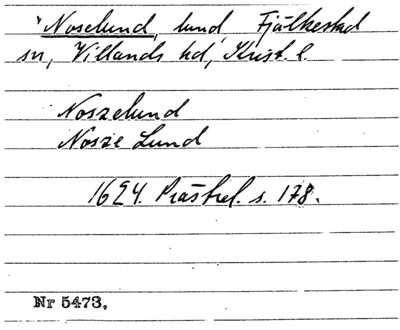 "Noselund, lund, Fjälkestad
sn, Villands hd, Krist. l.
Noszelund
Nosze Lund
1624. Prästrel. s. 178.
Nr 5473.